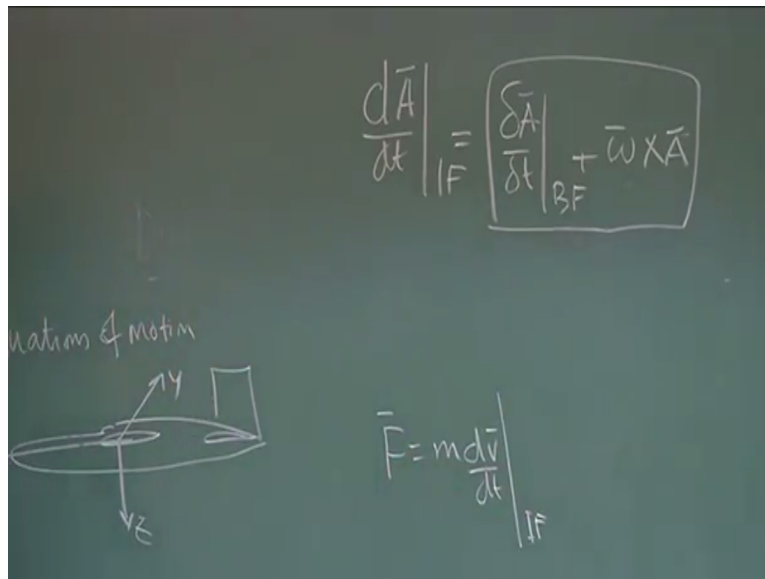 dĀ/dt|IF = δĀ/δt|BF + ω̄ × Ā
uations of motion
Y
Z
F̄ = m dv̄/dt|IF